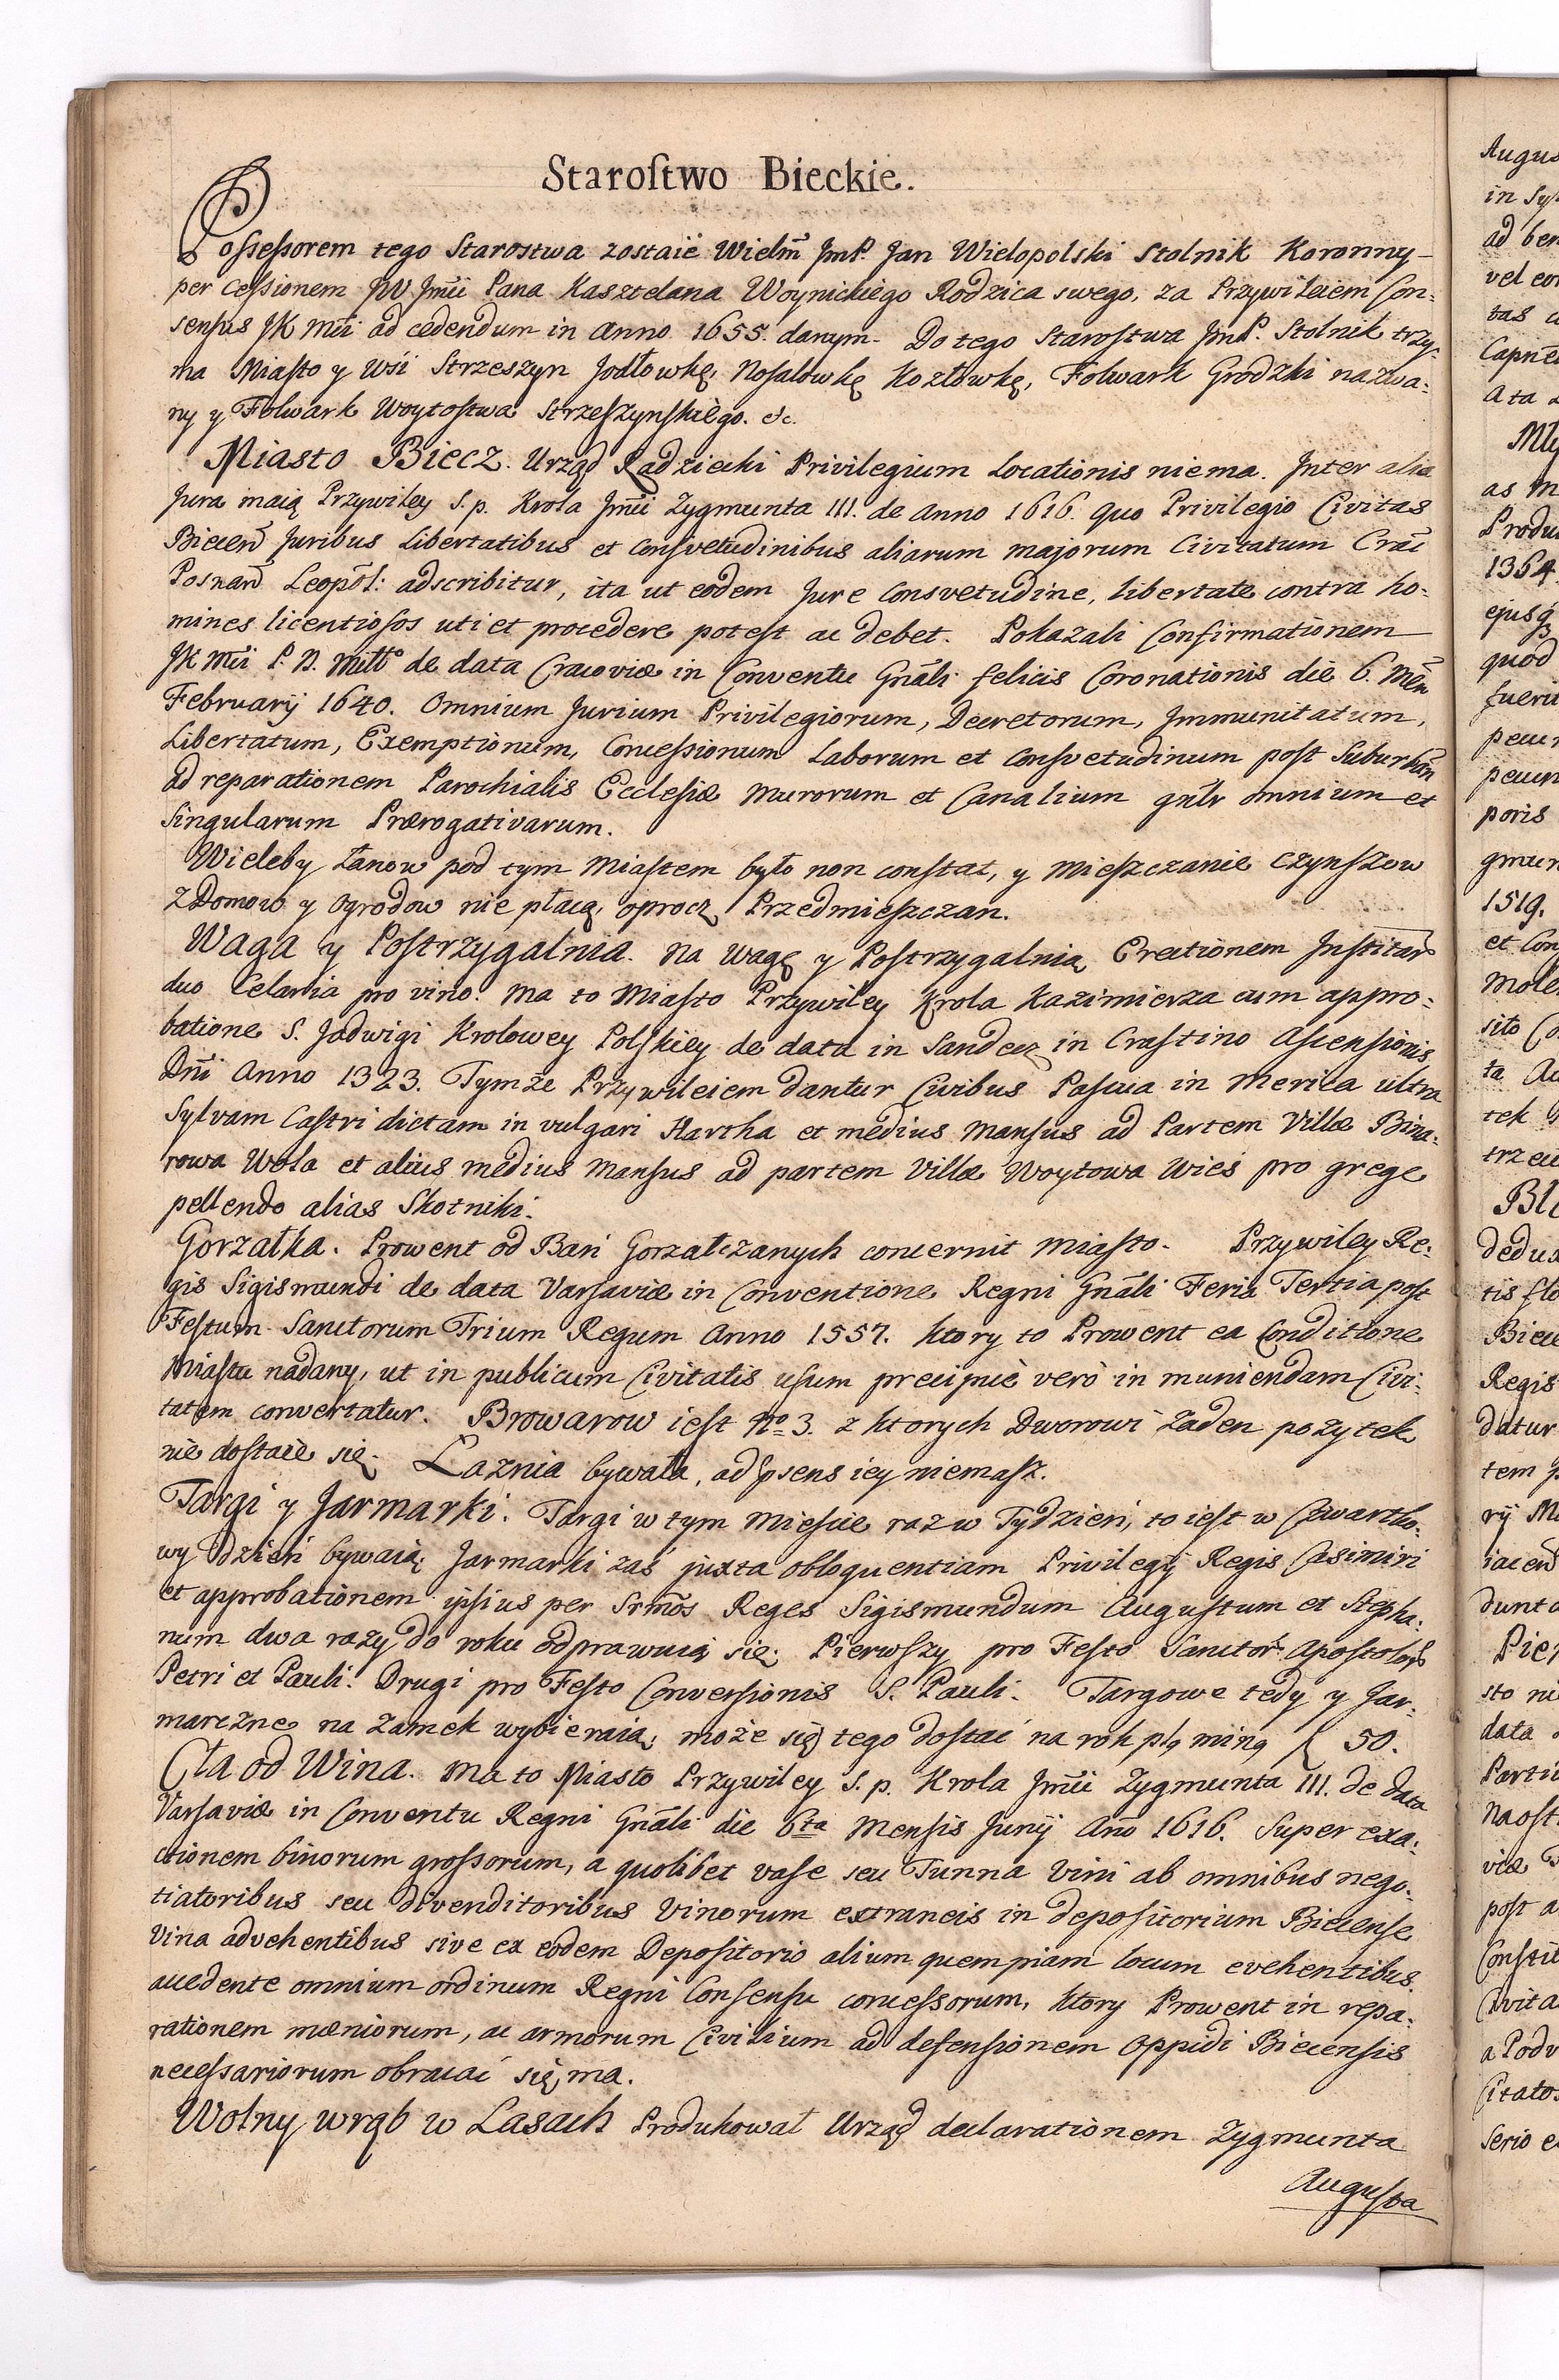 Starostwo Bieckie.
Possessorem tego Starostwa zostaie Wielm̃ JmP. Jan Wielopolski Stolnik Koronny
per Cessionem JW Jmći Pana Kasztelana Woynickiego Rodzica swego, za Przywileiem Con-
sensus JK Mći ad cedendum in Anno 1655. danym. Do tego Starostwa JmP. Stolnik trzy-
ma Miasto y Wsi Strzeszyn Jodłowkę, Nosalowkę Kozłowkę, Folwark Grodzki nazwa-
ny y Folwark Woytostwa Strzeszynskiego. etc.
Miasto Biecz. Urząd Radziecki Privilegium Locationis niema. Inter alia
Jura maią Przywiley S. p. Krola Jmći Zygmunta III. de Anno 1616. quo Privilegio Civitas
Biecen̄ Juribus Libertatibus et Consvetudinibus aliarum majorum Civitatum Crac̄
Posnan̄ Leopōl: adscribitur, ita ut eodem Jure Consvetudine, libertate contra ho-
mines licentiosos uti et procedere potest ac debet. Pokazali Confirmationem
JK Mći P. N. Miłło de data Cracoviæ in Conventu Gnāli felicis Coronationis die 6. Mēn
Februarij 1640. Omnium Jurium Privilegiorum, Decretorum, Immunitatum,
Libertatum, Exemptionum, Concessionum Laborum et Consvetudinum post Suburbān
ad reparationem Parochialis Ecclesiæ Murorum et Canalium gn̄lr omnium et
Singularum Prærogativarum.
Wieleby Łanow pod tym Miastem było non constat, y Mieszczanie Czynszow
z Domow y Ogrodow nie płacą, oprocz Przedmieszczan.
Waga y Postrzygalnia. Na Wagę y Postrzygalnią Erectionem Institar̄
duo Celaria pro vino. Ma to Miasto Przywiley Krola Kazimierza cum appro-
batione S. Jadwigi Krolowey Polskiey de data in Sandecz in Crastino Ascensionis
Dn̄i Anno 1323. Tymże Przywileiem dantur Civibus Pascua in Merica ultra
Sylvam Castri dictam in vulgari Hartha et medius Mansus ad Partem Villæ Bina-
rowa Wola et alius medius Mansus ad partem Villæ Woytowa Wies pro grege
pellendo alias Skotniki.
Gorzałka. Prowent od Bań Gorzałczanych concernit Miasto. Przywiley Re-
gis Sigismundi de data Varsaviæ in Conventione Regni Gnāli Feria Tertia post
Festum Sanctorum Trium Regum Anno 1557. ktory to Prowent ea Conditione
Miastu nadany, ut in publicum Civitatis usum precipuè verò in muniendam Civi-
tatem convertatur. Browarow iest No 3. z ktorych Dworowi żaden pożytek
nie dostaie się. Łaznia bywała, ad psens iey niemasz.
Targi y Jarmarki. Targi w tym Miescie raz w Tydzień, to iest w Czwartko-
wy dzień bywaią; Jarmarki zaś juxta obloquentiam Privilegij Regis Casimiri
et approbationem ipsius per Srm̄os Reges Sigismundum Augustum et Stepha-
num dwa razy do roku odprawuią się; Pierwszy pro Festo Sanctor Apostolor
Petri et Pauli. Drugi pro Festo Conversionis S. Pauli. Targowe tedy y Jar-
marczne na Zamek wybieraią; może się tego dostać na rok pl9 min9 f 50.
Cła od Wina. Ma to Miasto Przywiley S. p. Krola Jmći Zygmunta III. de data
Varsaviæ in Conventu Regni Gnāli die 6ta Mensis Junij Año 1616. Super exa-
ctionem binorum grossorum, a quolibet vase seu Tunna Vini ab omnibus nego-
tiatoribus seu divenditoribus Vinorum extraneis in depositorium Biecense
Vina advehentibus sive ex eodem Depositorio alium quempiam locum evehentibus.
accedente omnium ordinum Regni Consensu concessorum, ktory Prowent in repa-
rationem mœniorum, ac armorum Civilium ad defensionem Oppidi Biecensis
necessariorum obracać się ma.
Wolny wrąb w Lasach Produkował Urząd declarationem Zygmunta
Augusta